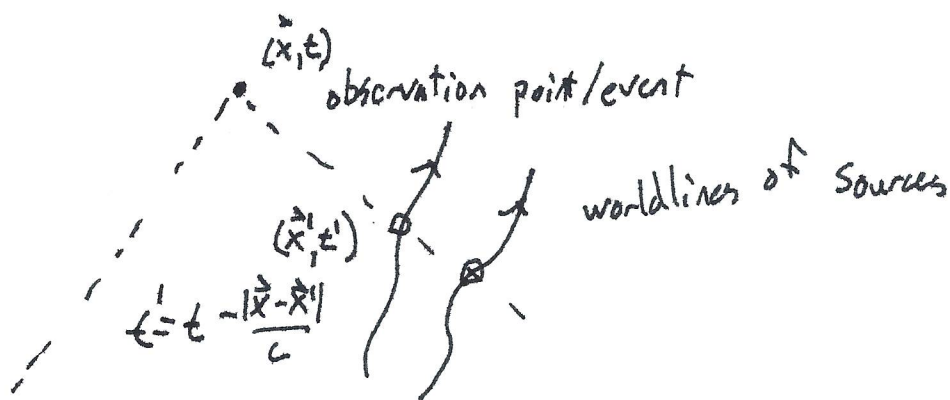 (x⃗,t)
observation point/event
worldlines of sources
(x⃗',t')
t' = t - |x⃗-x⃗'|/c